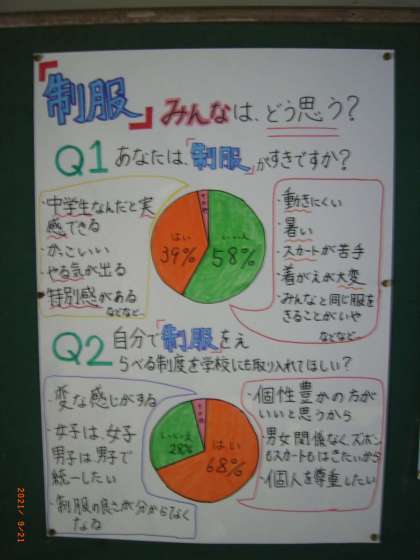 「制服」みんなは、どう思う?
Q1 あなたは、「制服」がすきですか?
・中学生なんだと実
感できる
・かっこいい
・やる気が出る
・特別感がある
などなど…
はい
39%
いいえ
58%
その他
・動きにくい
・暑い
・スカートが苦手
・着がえが大変
・みんなと同じ服を
きることがいや
などなど…
Q2 自分で「制服」をえ
らべる制度を学校にも取り入れてほしい?
・変な感じがする
・女子は、女子
男子は男子で
統一したい
・制服の良さが分からなく
なる
いいえ
28%
その他
はい
68%
・個性豊かの方が
いいと思うから
・男女関係なく、ズボン
もスカートもはきたいから
・個人を尊重したい
2021/ 9/21